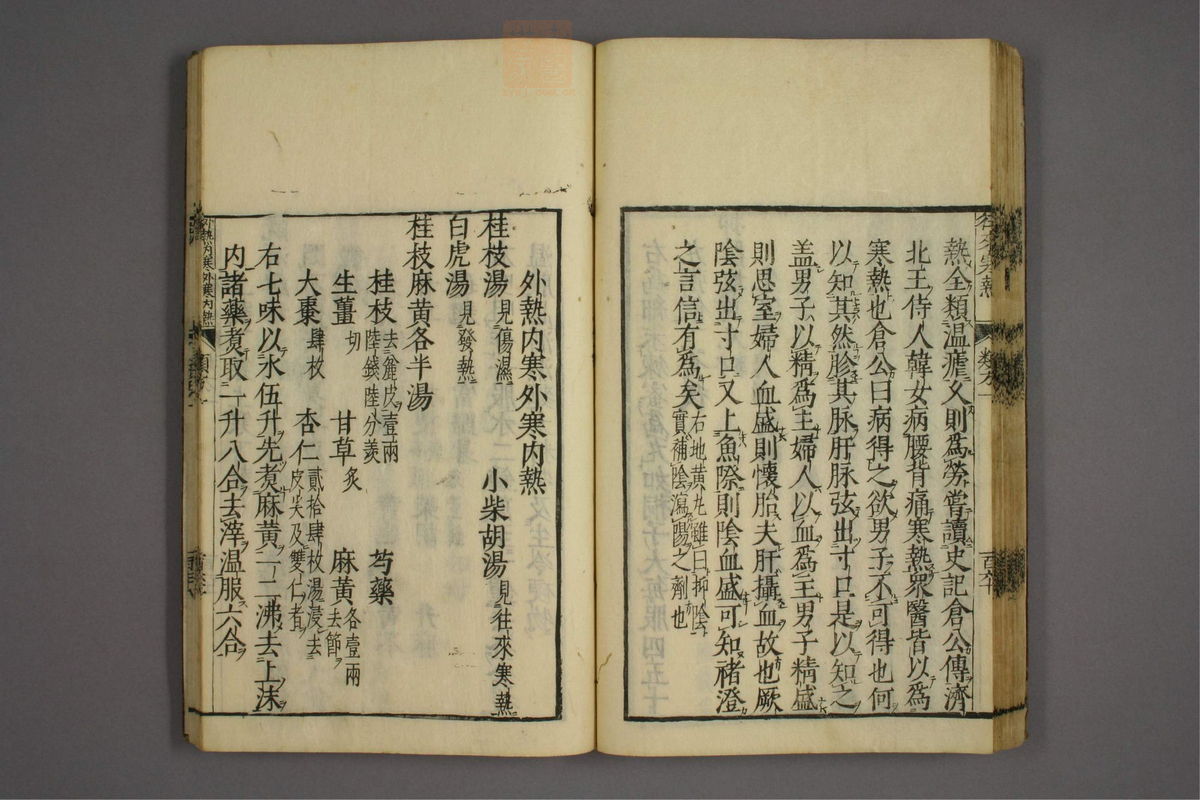 熱全類温瘧又則爲勞嘗讀史記倉公傳濟
北王侍人韓女病腰背痛寒熱衆醫皆以爲
寒熱也倉公曰病得之欲男子不可得也何
以知其然胗其脉肝脉弦出寸口是以知之
盖男子以精爲主婦人以血爲主男子精盛
則思室婦人血盛則懷胎夫肝攝血故也厥
陰弦出寸口又上魚際則陰血盛可知褚澄
之言信有爲矣右地黄丸雖曰抑陰
實補陰瀉陽之劑也
外熱内寒外寒内熱
桂枝湯見傷濕 小柴胡湯見往來寒熱
白虎湯見發熱
桂枝麻黄各半湯
桂枝去麄皮壹兩
陸錢陸分羨 芍藥
生薑切 甘草炙 麻黄各壹兩
去節
大棗肆枚 杏仁貳拾肆枚湯浸去
皮尖及雙仁者
右七味以水伍升先煮麻黄一二沸去上沫
内諸藥煮取一升八合去滓温服六合
外熱内寒外寒内熱